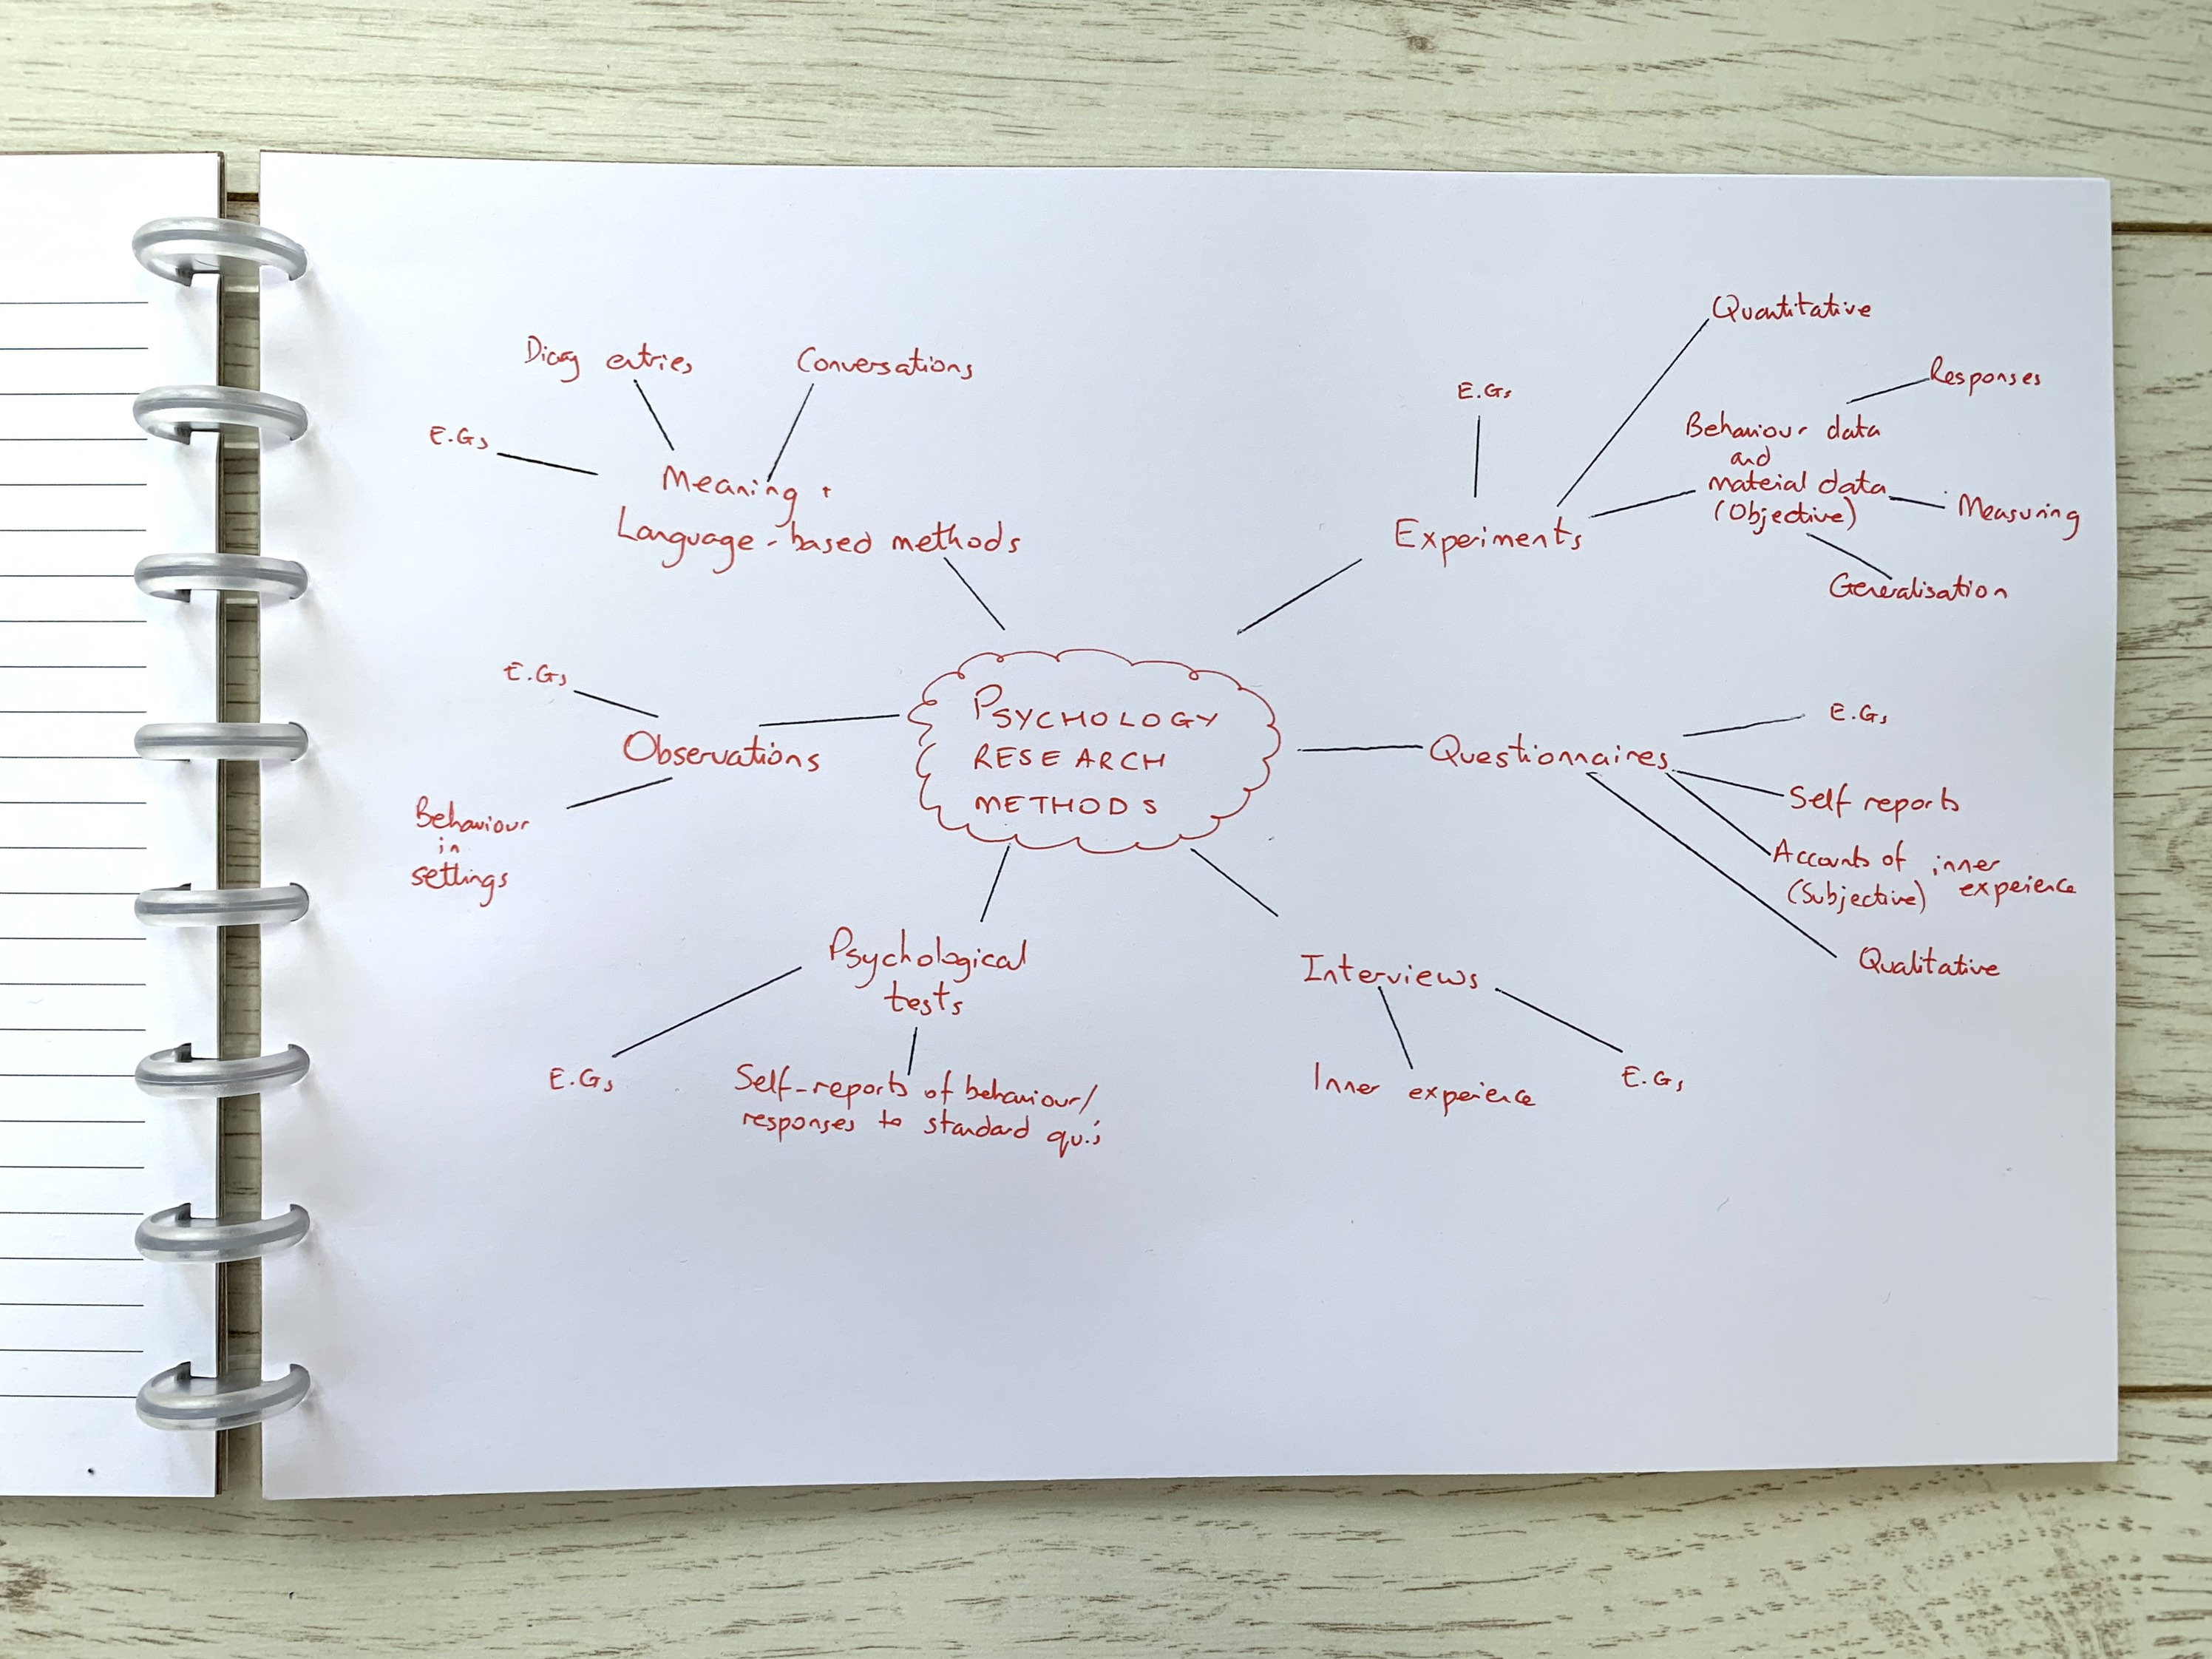 PSYCHOLOGY
RESEARCH
METHODS
Diary entries
Conversations
E.Gs
Meaning +
Language-based methods
E.Gs
Quantitative
Responses
Behaviour data
and
material data
(Objective)
Measuring
Generalisation
Experiments
E.Gs
Observations
Behaviour
in
settings
Questionnaires
E.Gs
Self reports
Accounts of inner
(Subjective) experience
Qualitative
Psychological
tests
E.Gs
Self-reports of behaviour/
responses to standard qu.'s
Interviews
Inner experience
E.Gs